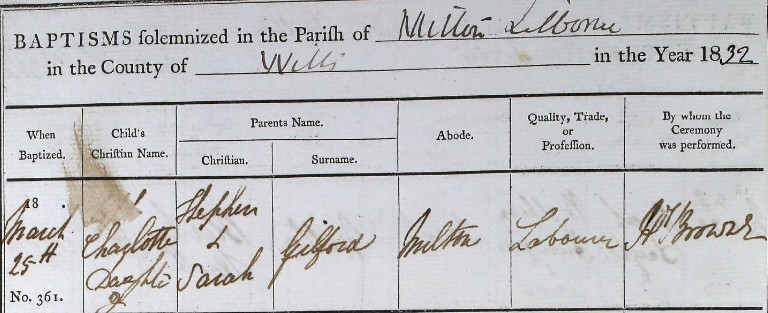 BAPTISMS ſolemnized in the Pariſh of Milton Lilborne
in the County of Wilts in the Year 1832
When Baptized.
Child's Chriſtian Name.
Parents Name.
Chriſtian.
Surname.
Abode.
Quality, Trade, or Profeſſion.
By whom the Ceremony was performed.
18
March
25th
No. 361.
Charlotte
Daughter
of
Stephen
&
Sarah
Gilford
Milton
Labourer